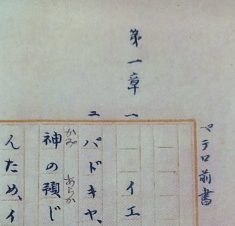 ペテロ前書
第一章
一 イエ
二 パドキヤ、
神の預じ
かみ あらか
んため、イ